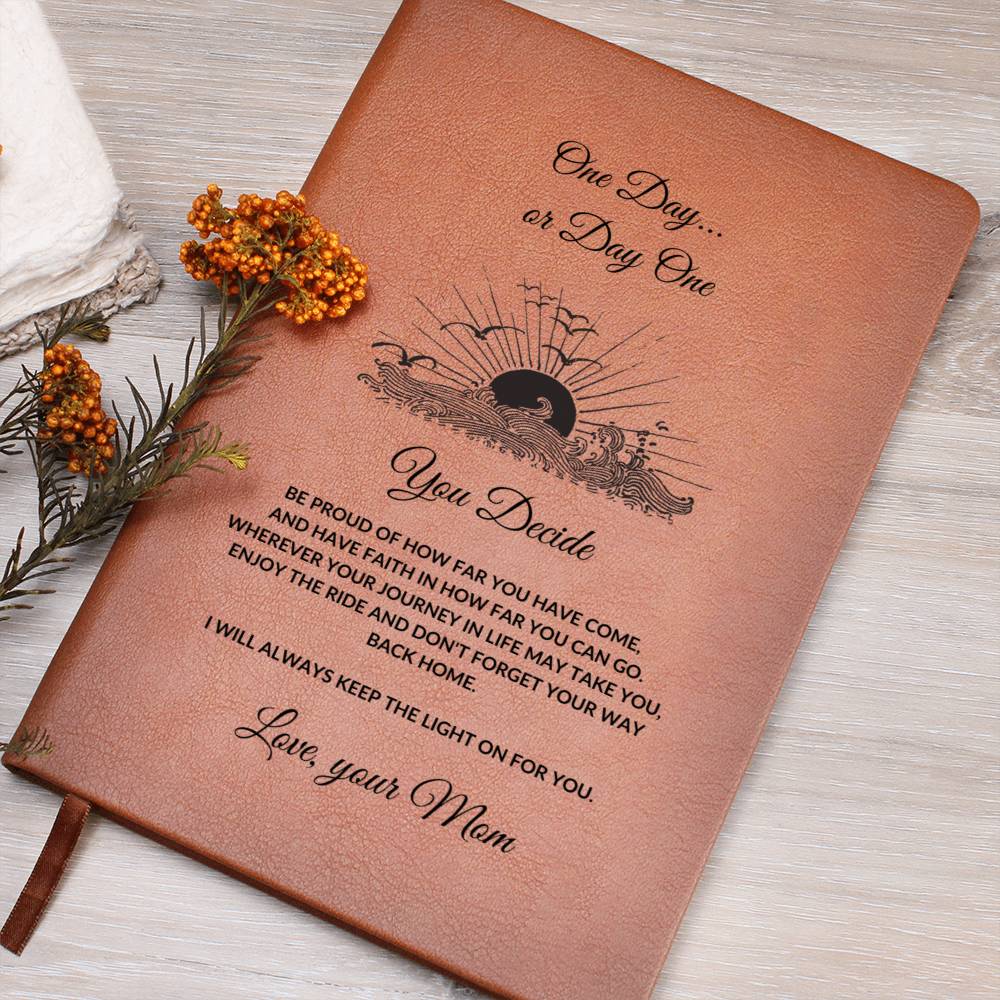 One Day...
or Day One
You Decide
BE PROUD OF HOW FAR YOU HAVE COME,
AND HAVE FAITH IN HOW FAR YOU CAN GO.
WHEREVER YOUR JOURNEY IN LIFE MAY TAKE YOU,
ENJOY THE RIDE AND DON'T FORGET YOUR WAY
BACK HOME.
I WILL ALWAYS KEEP THE LIGHT ON FOR YOU.
Love, your Mom